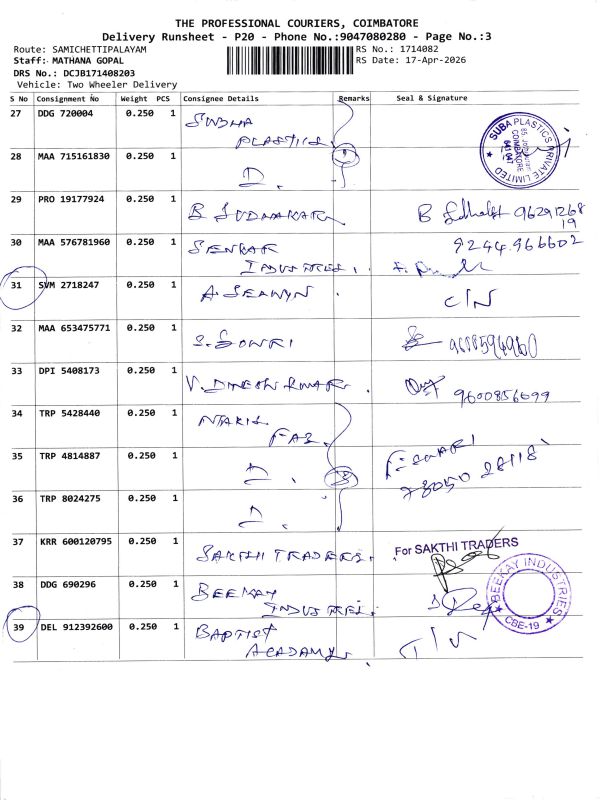 THE PROFESSIONAL COURIERS, COIMBATORE
Delivery Runsheet - P20 - Phone No.:9047080280 - Page No.:3
Route: SAMICHETTIPALAYAM RS No.: 1714082
Staff: MATHANA GOPAL RS Date: 17-Apr-2026
DRS No.: DCJB171408203
Vehicle: Two Wheeler Delivery
S No Consignment No Weight PCS Consignee Details Remarks Seal & Signature
27 DDG 720004 0.250 1 SUBHA
PLASTICS
SUBA PLASTICS PRIVATE LIMITED
COIMBATORE
641 047
28 MAA 715161830 0.250 1 D.
29 PRO 19177924 0.250 1 B SUDHAKAR B 96291268
19
30 MAA 576781960 0.250 1 SENKAR 9244.966602
INDUSTRIES.
31 SVM 2718247 0.250 1 A. SELWYN. C/N
32 MAA 653475771 0.250 1 S. GOWRI
33 DPI 5408173 0.250 1 V. DINESH KUMAR. 9600856699
34 TRP 5428440 0.250 1
FAB.
35 TRP 4814887 0.250 1 D. 3
78050 28118
36 TRP 8024275 0.250 1 D.
37 KRR 600120795 0.250 1 SAKTHI TRADERS. For SAKTHI TRADERS
38 DDG 690296 0.250 1 BEEKAY
INDUSTRIES.
BEEKAY INDUSTRIES
CBE-19
39 DEL 912392600 0.250 1 BAPTIST
ACADAMY.